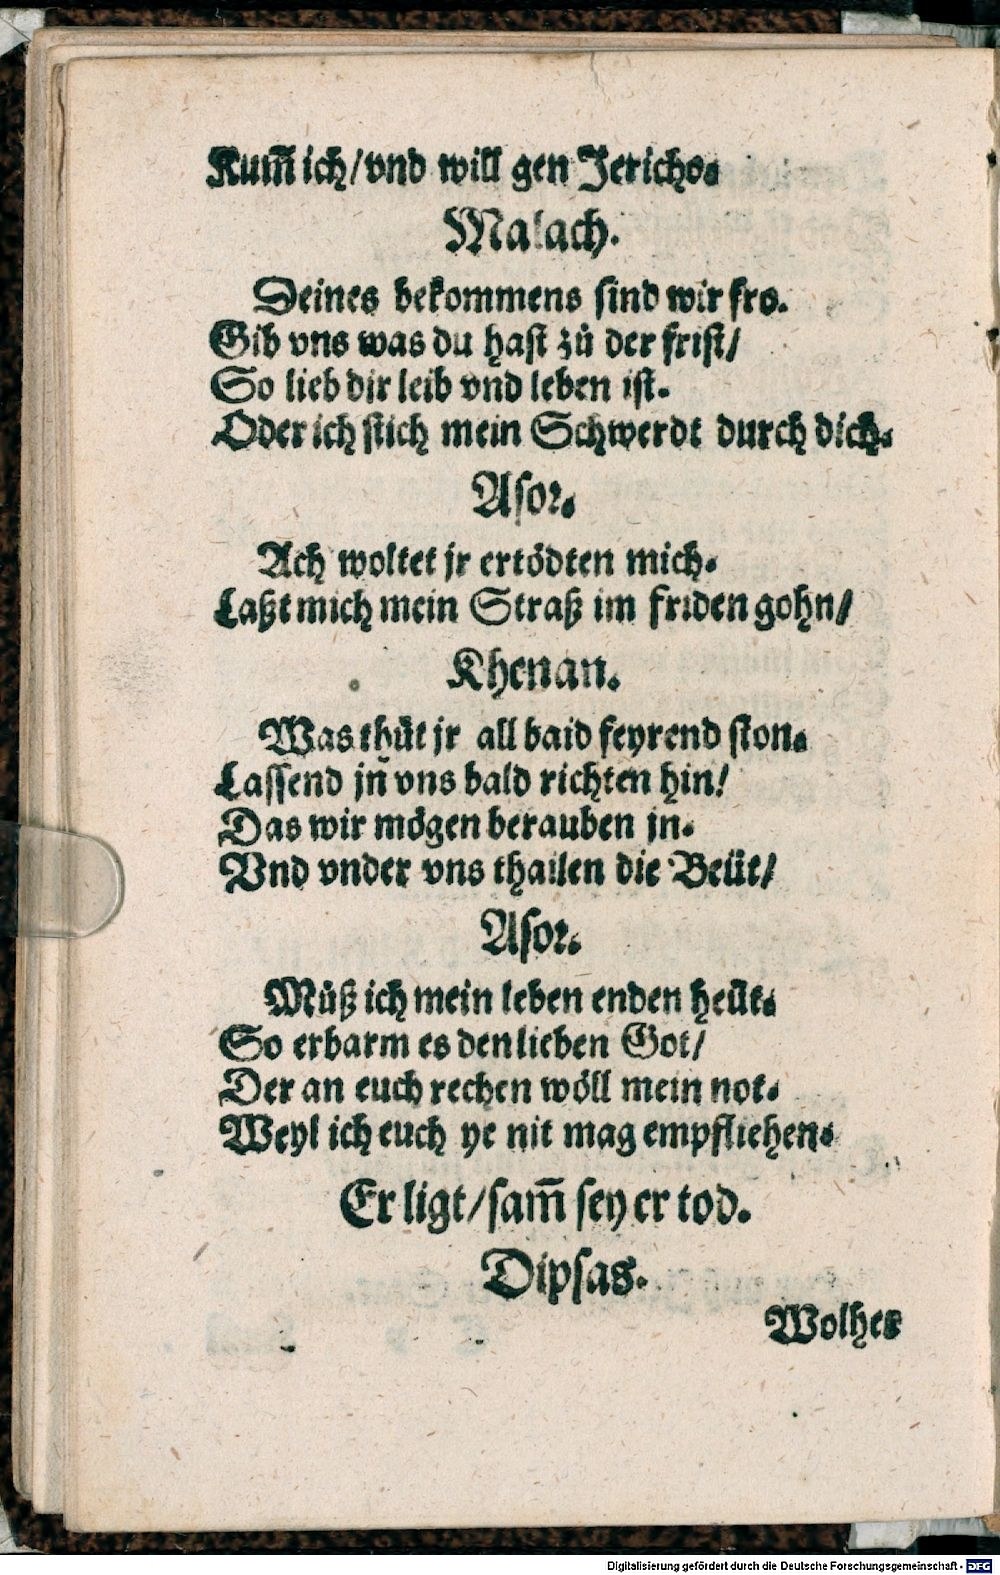 Kum̃ ich/vnd will gen Jericho.
Malach.
Deines bekommens sind wir fro.
Gib vns was du hast zů der frist/
So lieb dir leib vnd leben ist.
Oder ich stich mein Schwerdt durch dich.
Asor.
Ach woltet jr ertödten mich.
Laßt mich mein Straß im friden gohn/
Khenan.
Was thůt jr all baid feyrend ston.
Lassend jn vns bald richten hin/
Das wir mögen berauben jn.
Vnd vnder vns thailen die Beüt/
Asor.
Můß ich mein leben enden heüt.
So erbarm es den lieben Got/
Der an euch rechen wöll mein not.
Weyl ich euch ye nit mag empfliehen.
Er ligt/sam̃ sey er tod.
Dipsas.
Wolher
Digitalisierung gefördert durch die Deutsche Forschungsgemeinschaft - DFG